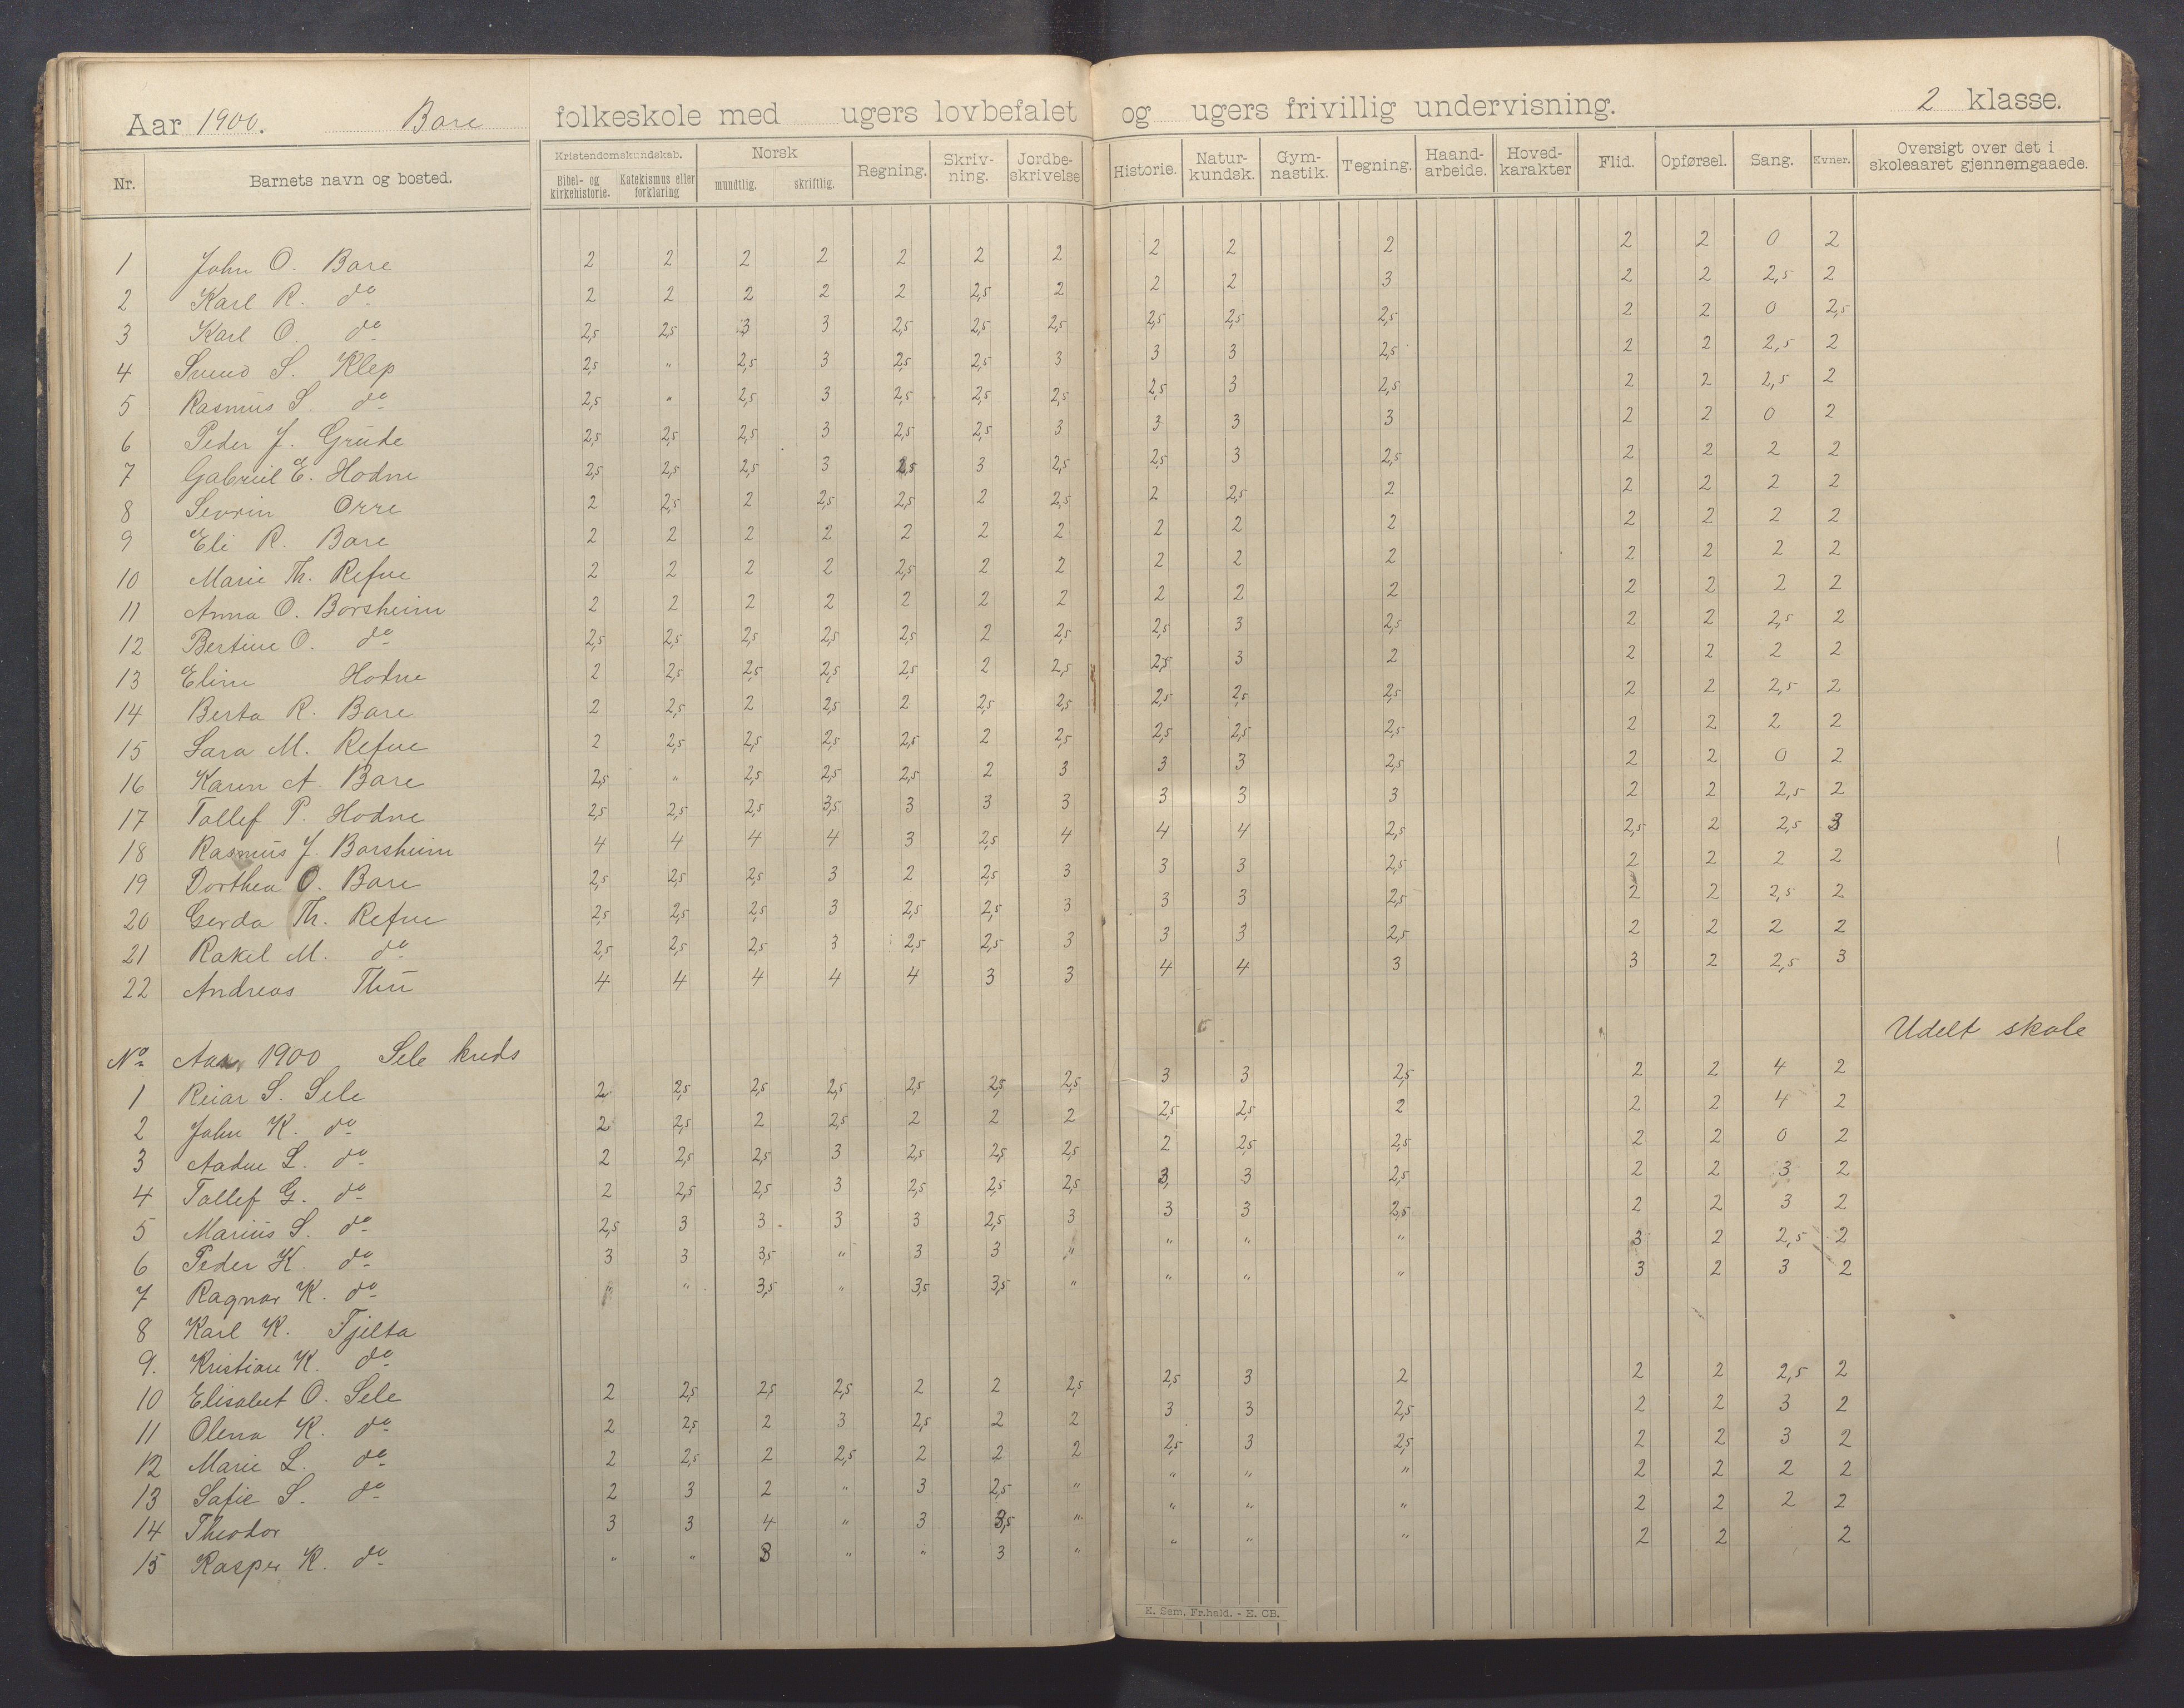 Aar 1900. Bore folkeskole med ugers lovbefalet og ugers frivillig undervisning. 2 klasse.
Nr. Barnets navn og bosted. Kristendomskundskab. Bibel- og kirkehistorie. Katekismus eller forklaring Norsk mundtlig. skriftlig. Regning. Skriv-ning. Jordbe-skrivelse Historie. Natur-kundsk. Gym-nastik. Tegning. Haand-arbeide. Hoved-karakter Flid. Opførsel. Sang. Evner. Oversigt over det i skoleaaret gjennemgaaede.
1 John O. Bore 2 2 2 2 2 2 2 2 2 2 2 2 0 2
2 Karl R. do 2 2 2 2 2 2,5 2 2 2 3 2 2 2,5 2
3 Karl O. do 2,5 2,5 3 3 2,5 2,5 2,5 2,5 2,5 2,5 2 2 0 2,5
4 Svend S. Klep 2,5 " 2,5 3 2,5 2,5 3 3 3 2,5 2 2 2,5 2
5 Rasmus S. do 2,5 " 2,5 3 2,5 2,5 2,5 2,5 3 2,5 2 2 2,5 2
6 Peder J. Grude 2,5 2,5 2,5 3 2,5 2,5 3 3 3 3 2 2 0 2
7 Gabriel E. Hodne 2,5 2,5 2,5 3 2,5 3 2,5 2,5 3 2,5 2 2 2 2
8 Sevrin Orre 2 2,5 2 2,5 2,5 2 2,5 2 2,5 2 2 2 2 2
9 Eli R. Bore 2 2 2 2 2 2 2 2 2 2 2 2 2 2
10 Marie Th. Refve 2 2 2 2 2,5 2 2 2 2 2 2 2 2 2
11 Anna O. Borsheim 2 2 2 2 2 2 2 2 2 2 2 2 2 2
12 Bertine O. do 2,5 2,5 2,5 2,5 2,5 2 2,5 2,5 3 2,5 2 2 2,5 2
13 Eline Hodne 2 2,5 2,5 2,5 2,5 2 2,5 2,5 3 2 2 2 2 2
14 Berta R. Bore 2 2,5 2 2,5 2 2,5 2,5 2,5 2,5 2,5 2 2 2,5 2
15 Sara M. Refve 2 2,5 2,5 2,5 2,5 2 2,5 2,5 2,5 2,5 2 2 2 2
16 Karen A. Bore 2,5 " 2,5 2,5 2,5 2 3 3 3 2,5 2 2 0 2
17 Tollef P. Hodne 2,5 2,5 2,5 3,5 3 3 3 3 3 3 2 2 2,5 2
18 Rasmus J. Borsheim 4 4 4 4 3 2,5 4 4 4 2,5 2,5 2 2,5 3
19 Dorthea O. Bore 2,5 2,5 2,5 3 2 2,5 3 3 3 2,5 2 2 2 2
20 Gerda Th. Refve 2,5 2,5 2,5 3 2,5 2,5 3 3 3 2,5 2 2 2,5 2
21 Rakel M. do 2,5 2,5 2,5 3 2,5 2,5 3 3 3 2,5 2 2 2 2
22 Andreas Thu 4 4 4 4 4 3 3 4 4 3 3 2 2,5 3
Udelt skole
No Aar 1900 Sele kreds
1 Reiar S. Sele 2 2,5 2,5 2,5 2,5 2,5 2,5 3 3 2,5 2 2 4 2
2 John K. do 2 2,5 2 2,5 2 2 2 2,5 2,5 2 2 2 4 2
3 Aadne L. do 2 2,5 2,5 3 2,5 2,5 2,5 2 2,5 2,5 2 2 0 2
4 Tollef G. do 2 2,5 2,5 3 2,5 2,5 2,5 3 3 2,5 2 2 3 2
5 Marius S. do 2,5 3 3 3 3 2,5 3 3 3 2,5 2 2 3 2
6 Peder K. do 3 3 3,5 " 3 3 " " " " 3 2 2,5 2
7 Ragnar K. do " " 3,5 " 3,5 3,5 " " " " 3 2 3 2
8 Karl K. Tjelta
9. Kristian K. do
10 Elisabet O. Sele 2 2,5 2,5 2,5 2 2 2,5 2,5 3 2 2 2 2,5 2
11 Olena K. do 2 2,5 2 3 2,5 2 2 3 3 2,5 2 2 3 2
12 Marie L. do 2 2,5 2 2,5 2 2 2 2,5 3 2,5 2 2 3 2
13 Sofie S. do 2 3 2 " 3 2,5 " " " " 2 2 2 2
14 Theodor 3 3 4 " 3 3,5 " " " " 2 2 2 2
15 Kasper K. do " " 3 " " 3 " " " " 2 2 2
E. Sem, Fr.hald. - E. CB.